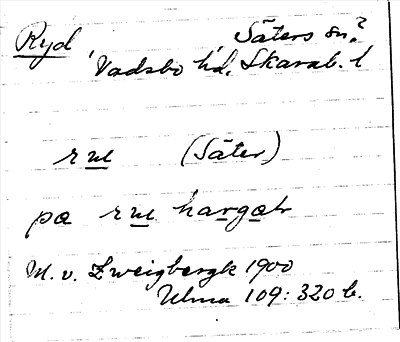 Ryd, Säters sn?
Vadsbo hd, Skarab. l
(Säter)
M. v. Zweigbergk 1900
Ulma 109: 320 b.